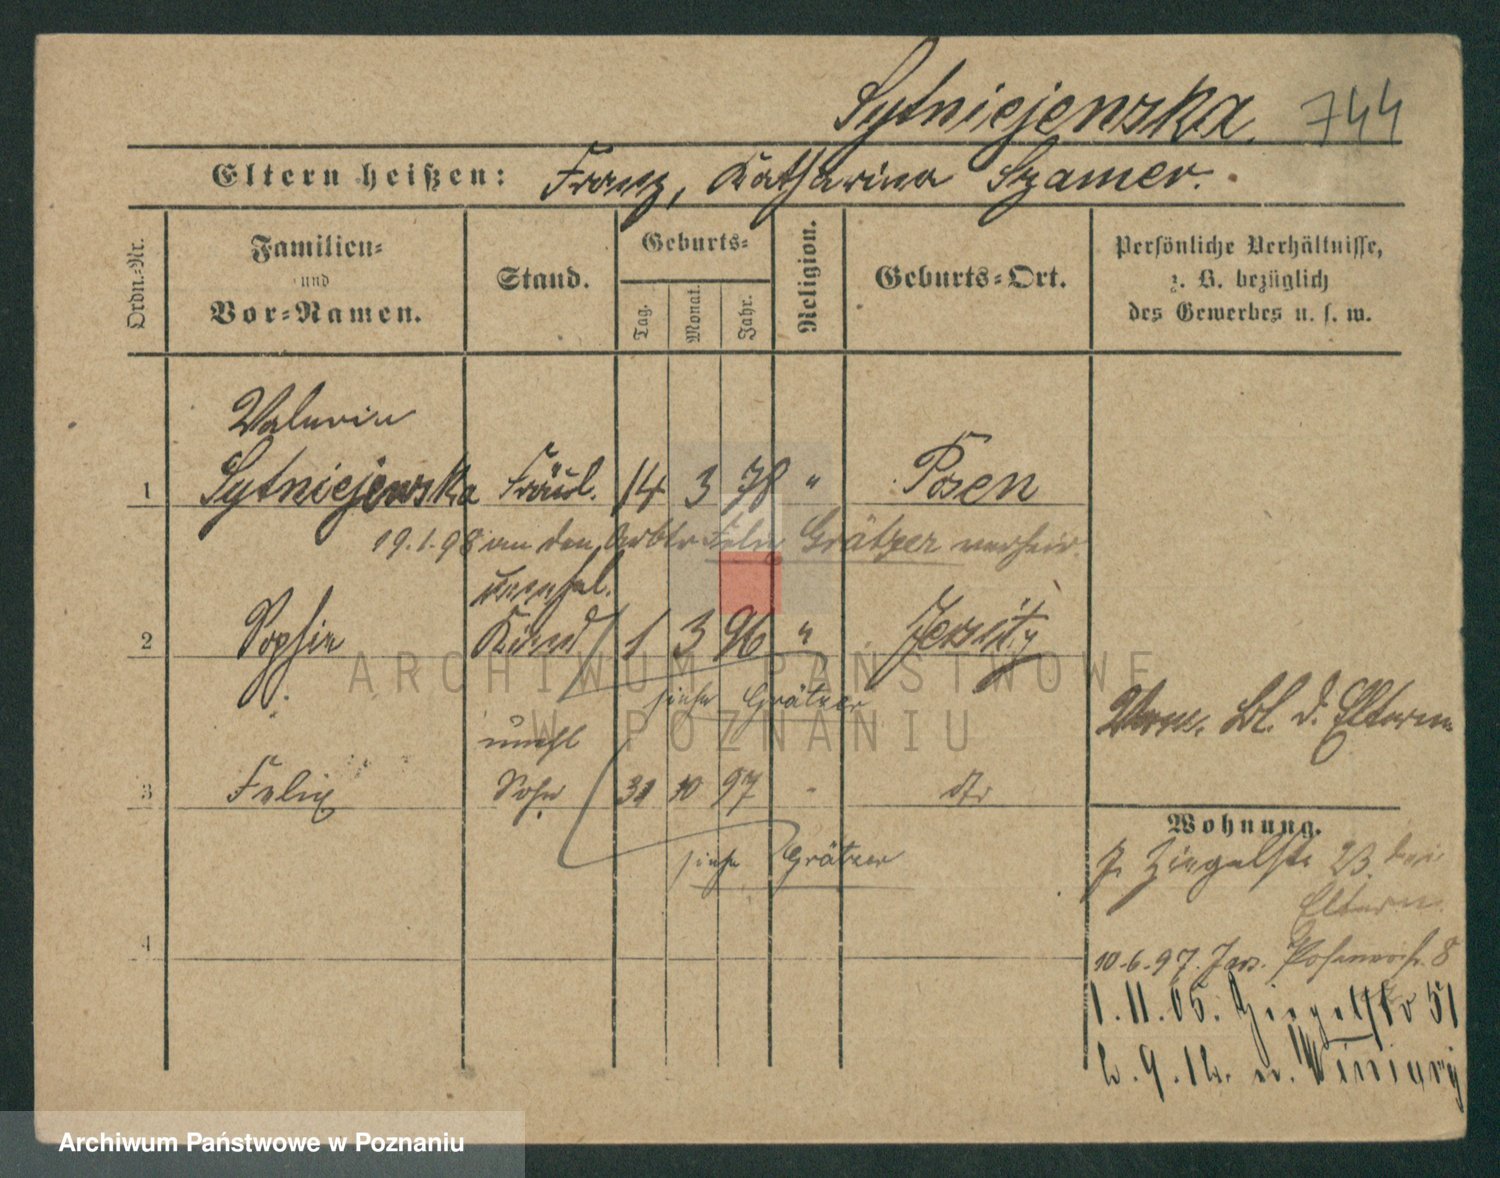 Sytniejewska. 744
Eltern heißen: Franz, Katharina Szamer.
Ordn.-Nr.
Familien-
und
Vor-Namen.
Stand.
Geburts-
Tag.
Monat.
Jahr.
Religion.
Geburts-Ort.
Persönliche Verhältnisse,
z. B. bezüglich
des Gewerbes u. s. w.
Valerie
1 Sytniejewska Fräul. 14 3 78 " Posen
19.1.98 an den Arbtr Felix Grätzer verheir.
unehel.
2 Sophie Kind 1 3 96 " Jersitz
siehe Grätzer
unehl
3 Felix Sohn 31 10 97 - dto
siehe Grätzer
4
d. Eltern
Wohnung.
J. Ziegelstr 23 bei
Eltern
10.6.97. Jers. Posenerstr. 8
1.11.05. Ziegelstr 51
2.9.12. n. Winiary
ARCHIWUM PAŃSTWOWE
W POZNANIU
Archiwum Państwowe w Poznaniu